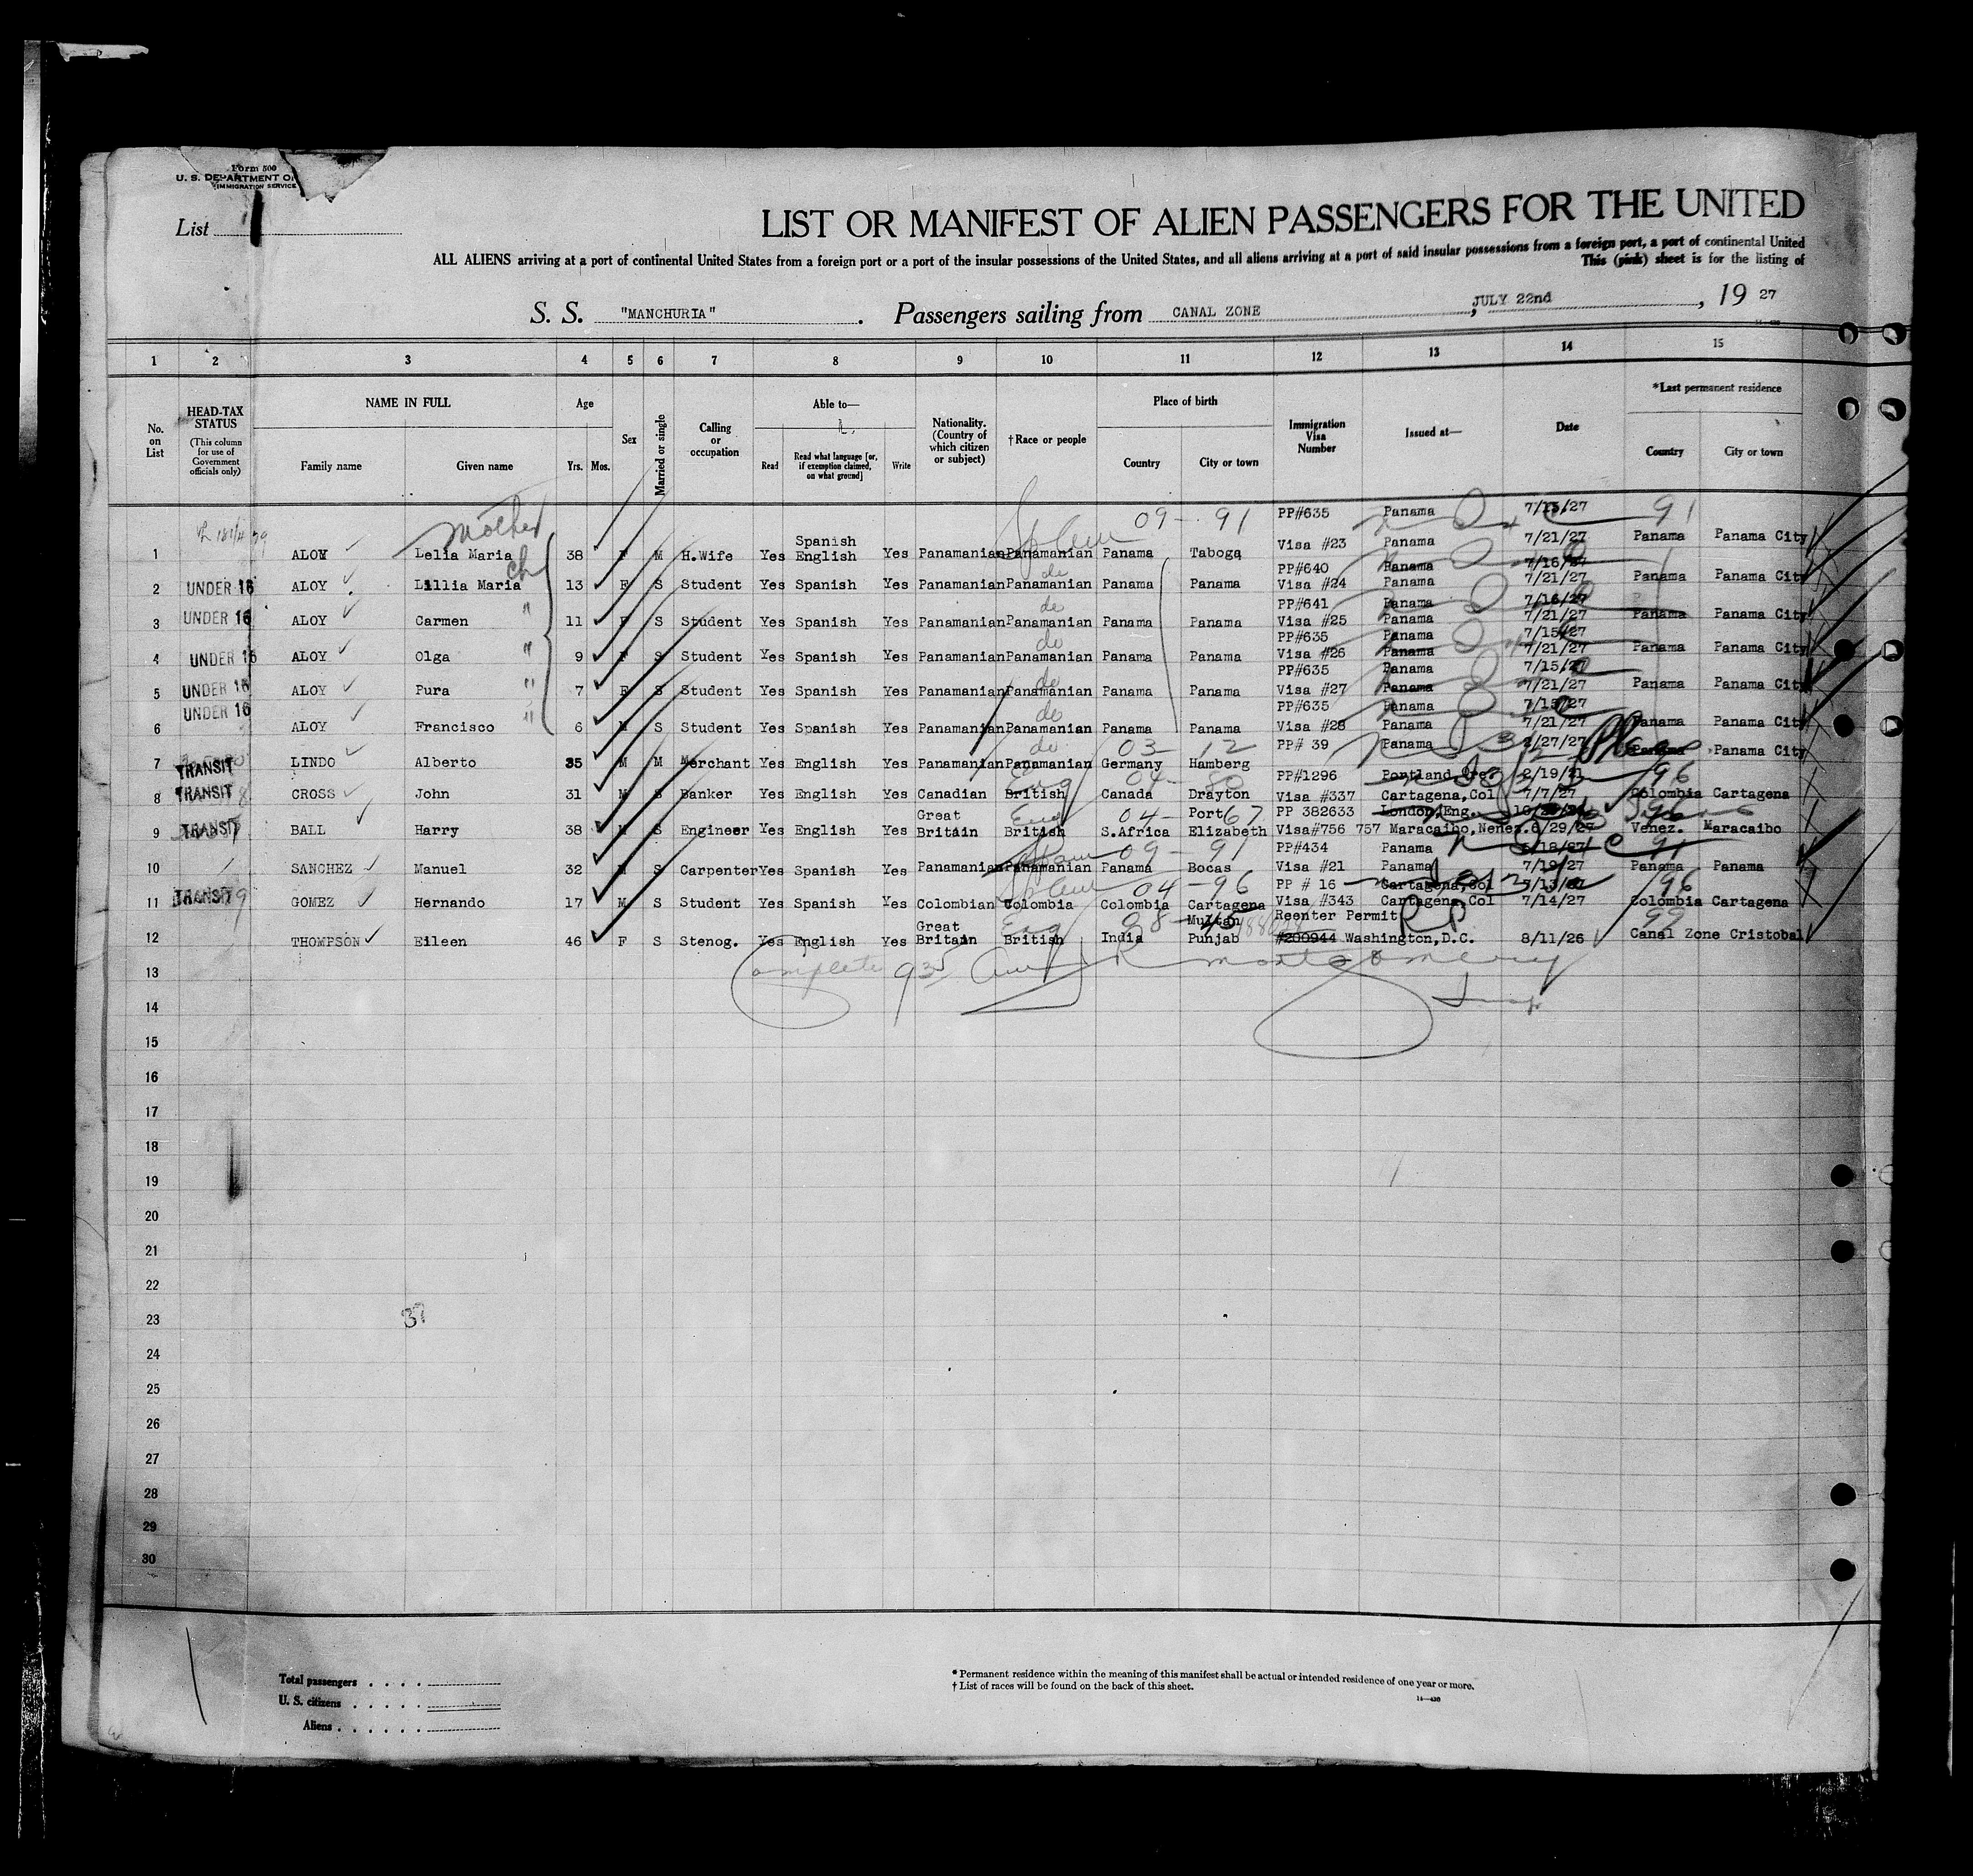 Form 500
U. S. DEPARTMENT OF
IMMIGRATION SERVICE
List 1
LIST OR MANIFEST OF ALIEN PASSENGERS FOR THE UNITED
ALL ALIENS arriving at a port of continental United States from a foreign port or a port of the insular possessions of the United States, and all aliens arriving at a port of said insular possessions from a foreign port, a port of continental United
This (pink) sheet is for the listing of
S. S. "MANCHURIA" . Passengers sailing from CANAL ZONE , JULY 22nd , 19 27
1 2 3 4 5 6 7 8 9 10 11 12 13 14 15
No. on List
HEAD-TAX STATUS (This column for use of Government officials only)
NAME IN FULL
Family name Given name
Age
Yrs. Mos.
Sex
Married or single
Calling or occupation
Able to—
Read Read what language [or, if exemption claimed, on what ground] Write
Nationality. (Country of which citizen or subject)
†Race or people
Place of birth
Country City or town
Immigration Visa Number
Issued at—
Date
*Last permanent residence
Country City or town
Mother 09 - 91 PP#635 Panama 7/15/27 91
1 ALOY Lelia Maria 38 F M H.Wife Yes Spanish English Yes Panamanian Panamanian Panama Taboga Visa #23 Panama 7/21/27 Panama Panama City
ch do PP#640 Panama 7/16/27
2 UNDER 16 ALOY Lillia Maria 13 F S Student Yes Spanish Yes Panamanian Panamanian Panama Panama Visa #24 Panama 7/21/27 Panama Panama City
" do PP#641 Panama 7/16/27
3 UNDER 16 ALOY Carmen 11 F S Student Yes Spanish Yes Panamanian Panamanian Panama Panama Visa #25 Panama 7/21/27 Panama Panama City
" do PP#635 Panama 7/15/27
4 UNDER 16 ALOY Olga 9 F S Student Yes Spanish Yes Panamanian Panamanian Panama Panama Visa #26 Panama 7/21/27 Panama Panama City
" do PP#635 Panama 7/15/27
5 UNDER 16 ALOY Pura 7 F S Student Yes Spanish Yes Panamanian Panamanian Panama Panama Visa #27 Panama 7/21/27 Panama Panama City
UNDER 16 " do PP#635 Panama 7/15/27
6 ALOY Francisco 6 M S Student Yes Spanish Yes Panamanian Panamanian Panama Panama Visa #28 Panama 7/21/27 Panama Panama City
do 03- 12 PP# 39 Panama 2/27/27
7 TRANSIT LINDO Alberto 35 M M Merchant Yes English Yes Panamanian Panamanian Germany Hamberg Panama Panama City
Eng 04- 80 PP#1296 Portland,Ore. 2/19/21 96
8 TRANSIT CROSS John 31 M S Banker Yes English Yes Canadian British Canada Drayton Visa #337 Cartagena,Col 7/7/27 Colombia Cartagena
Eng 04- 67 PP 382633 London,Eng. 96
9 TRANSIT BALL Harry 38 M S Engineer Yes English Yes Great Britain British S.Africa Port Elizabeth Visa#756 757 Maracaibo,Nenez. 6/29/27 Venez. Maracaibo
09 - 91 PP#434 Panama 5/18/27 91
10 SANCHEZ Manuel 32 M S Carpenter Yes Spanish Yes Panamanian Panamanian Panama Bocas Visa #21 Panama 7/19/27 Panama Panama
04 - 96 PP # 16 Cartagena,Col 7/13/27 96
11 TRANSIT GOMEZ Hernando 17 M S Student Yes Spanish Yes Colombian Colombia Colombia Cartagena Visa #343 Cartagena,Col 7/14/27 Colombia Cartagena
Eng 08- 45 Reenter Permit RP 99
12 THOMPSON Eileen 46 F S Stenog. Yes English Yes Great Britain British India Multan Punjab #200944 Washington,D.C. 8/11/26 Canal Zone Cristobal
13 Complete 935 R Montgomery
14 Insp
15
16
17
18
19
20
21
22
23 37
24
25
26
27
28
29
30
Total passengers . . . .
U. S. citizens . . . . .
Aliens . . . . . .
* Permanent residence within the meaning of this manifest shall be actual or intended residence of one year or more.
† List of races will be found on the back of this sheet.
14—430